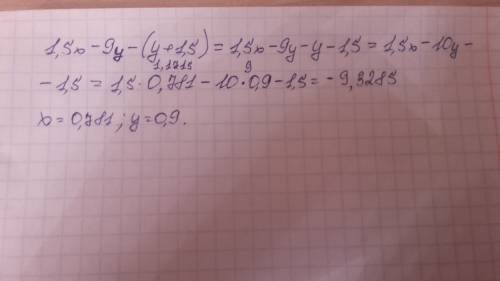 1,5x - 9y - (y+1,5) = 1,5x - 9y - y - 1,5 = 1,5x - 10y -
1,1715 9
- 1,5 = 1,5 · 0,781 - 10 · 0,9 - 1,5 = - 9,3285
x = 0,781 ; y = 0,9.